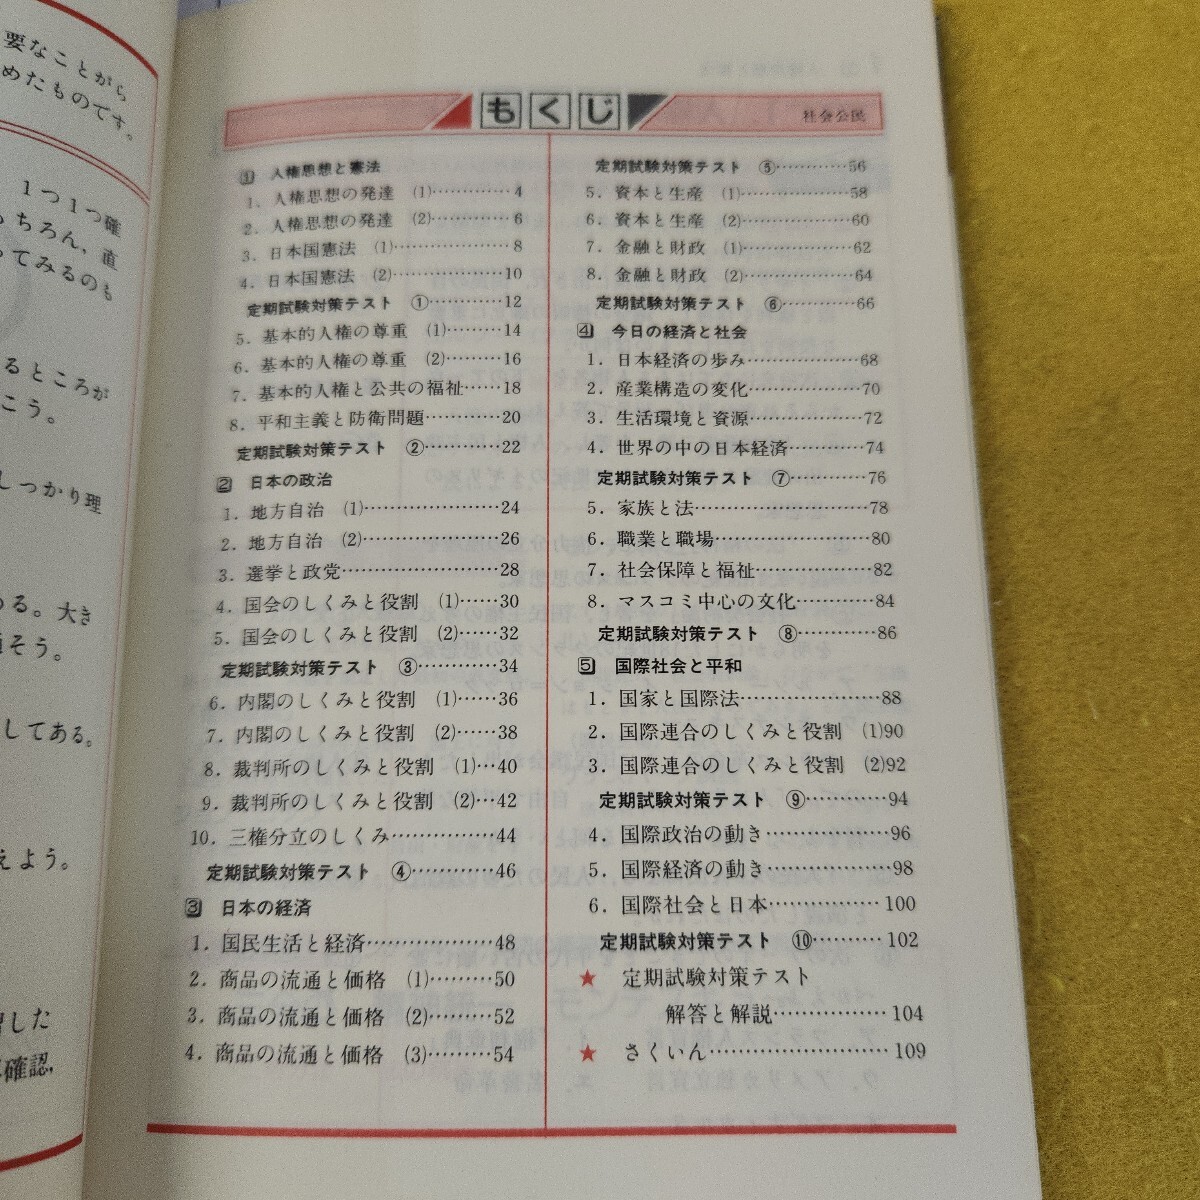 要なことがら
めたものです。
1つ1つ確
ちろん，直
ってみるのも
るところが
こう。
しっかり理
る。大き
そう。
してある。
えよう。
した
確認，
もくじ
社会公民
1 人権思想と憲法
1．人権思想の発達 (1)…………4
2．人権思想の発達 (2)…………6
3．日本国憲法 (1)………………8
4．日本国憲法 (2)………………10
定期試験対策テスト ①…………12
5．基本的人権の尊重 (1)………14
6．基本的人権の尊重 (2)………16
7．基本的人権と公共の福祉……18
8．平和主義と防衛問題…………20
定期試験対策テスト ②…………22
2 日本の政治
1．地方自治 (1)…………………24
2．地方自治 (2)…………………26
3．選挙と政党……………………28
4．国会のしくみと役割 (1)……30
5．国会のしくみと役割 (2)……32
定期試験対策テスト ③…………34
6．内閣のしくみと役割 (1)……36
7．内閣のしくみと役割 (2)……38
8．裁判所のしくみと役割 (1)…40
9．裁判所のしくみと役割 (2)…42
10．三権分立のしくみ……………44
定期試験対策テスト ④…………46
3 日本の経済
1．国民生活と経済………………48
2．商品の流通と価格 (1)………50
3．商品の流通と価格 (2)………52
4．商品の流通と価格 (3)………54
定期試験対策テスト ⑤…………56
5．資本と生産 (1)………………58
6．資本と生産 (2)………………60
7．金融と財政 (1)………………62
8．金融と財政 (2)………………64
定期試験対策テスト ⑥…………66
4 今日の経済と社会
1．日本経済の歩み………………68
2．産業構造の変化………………70
3．生活環境と資源………………72
4．世界の中の日本経済…………74
定期試験対策テスト ⑦…………76
5．家族と法………………………78
6．職業と職場……………………80
7．社会保障と福祉………………82
8．マスコミ中心の文化…………84
定期試験対策テスト ⑧…………86
5 国際社会と平和
1．国家と国際法…………………88
2．国際連合のしくみと役割 (1)90
3．国際連合のしくみと役割 (2)92
定期試験対策テスト ⑨…………94
4．国際政治の動き………………96
5．国際経済の動き………………98
6．国際社会と日本………………100
定期試験対策テスト ⑩…………102
★ 定期試験対策テスト
解答と解説………………104
★ さくいん………………………109